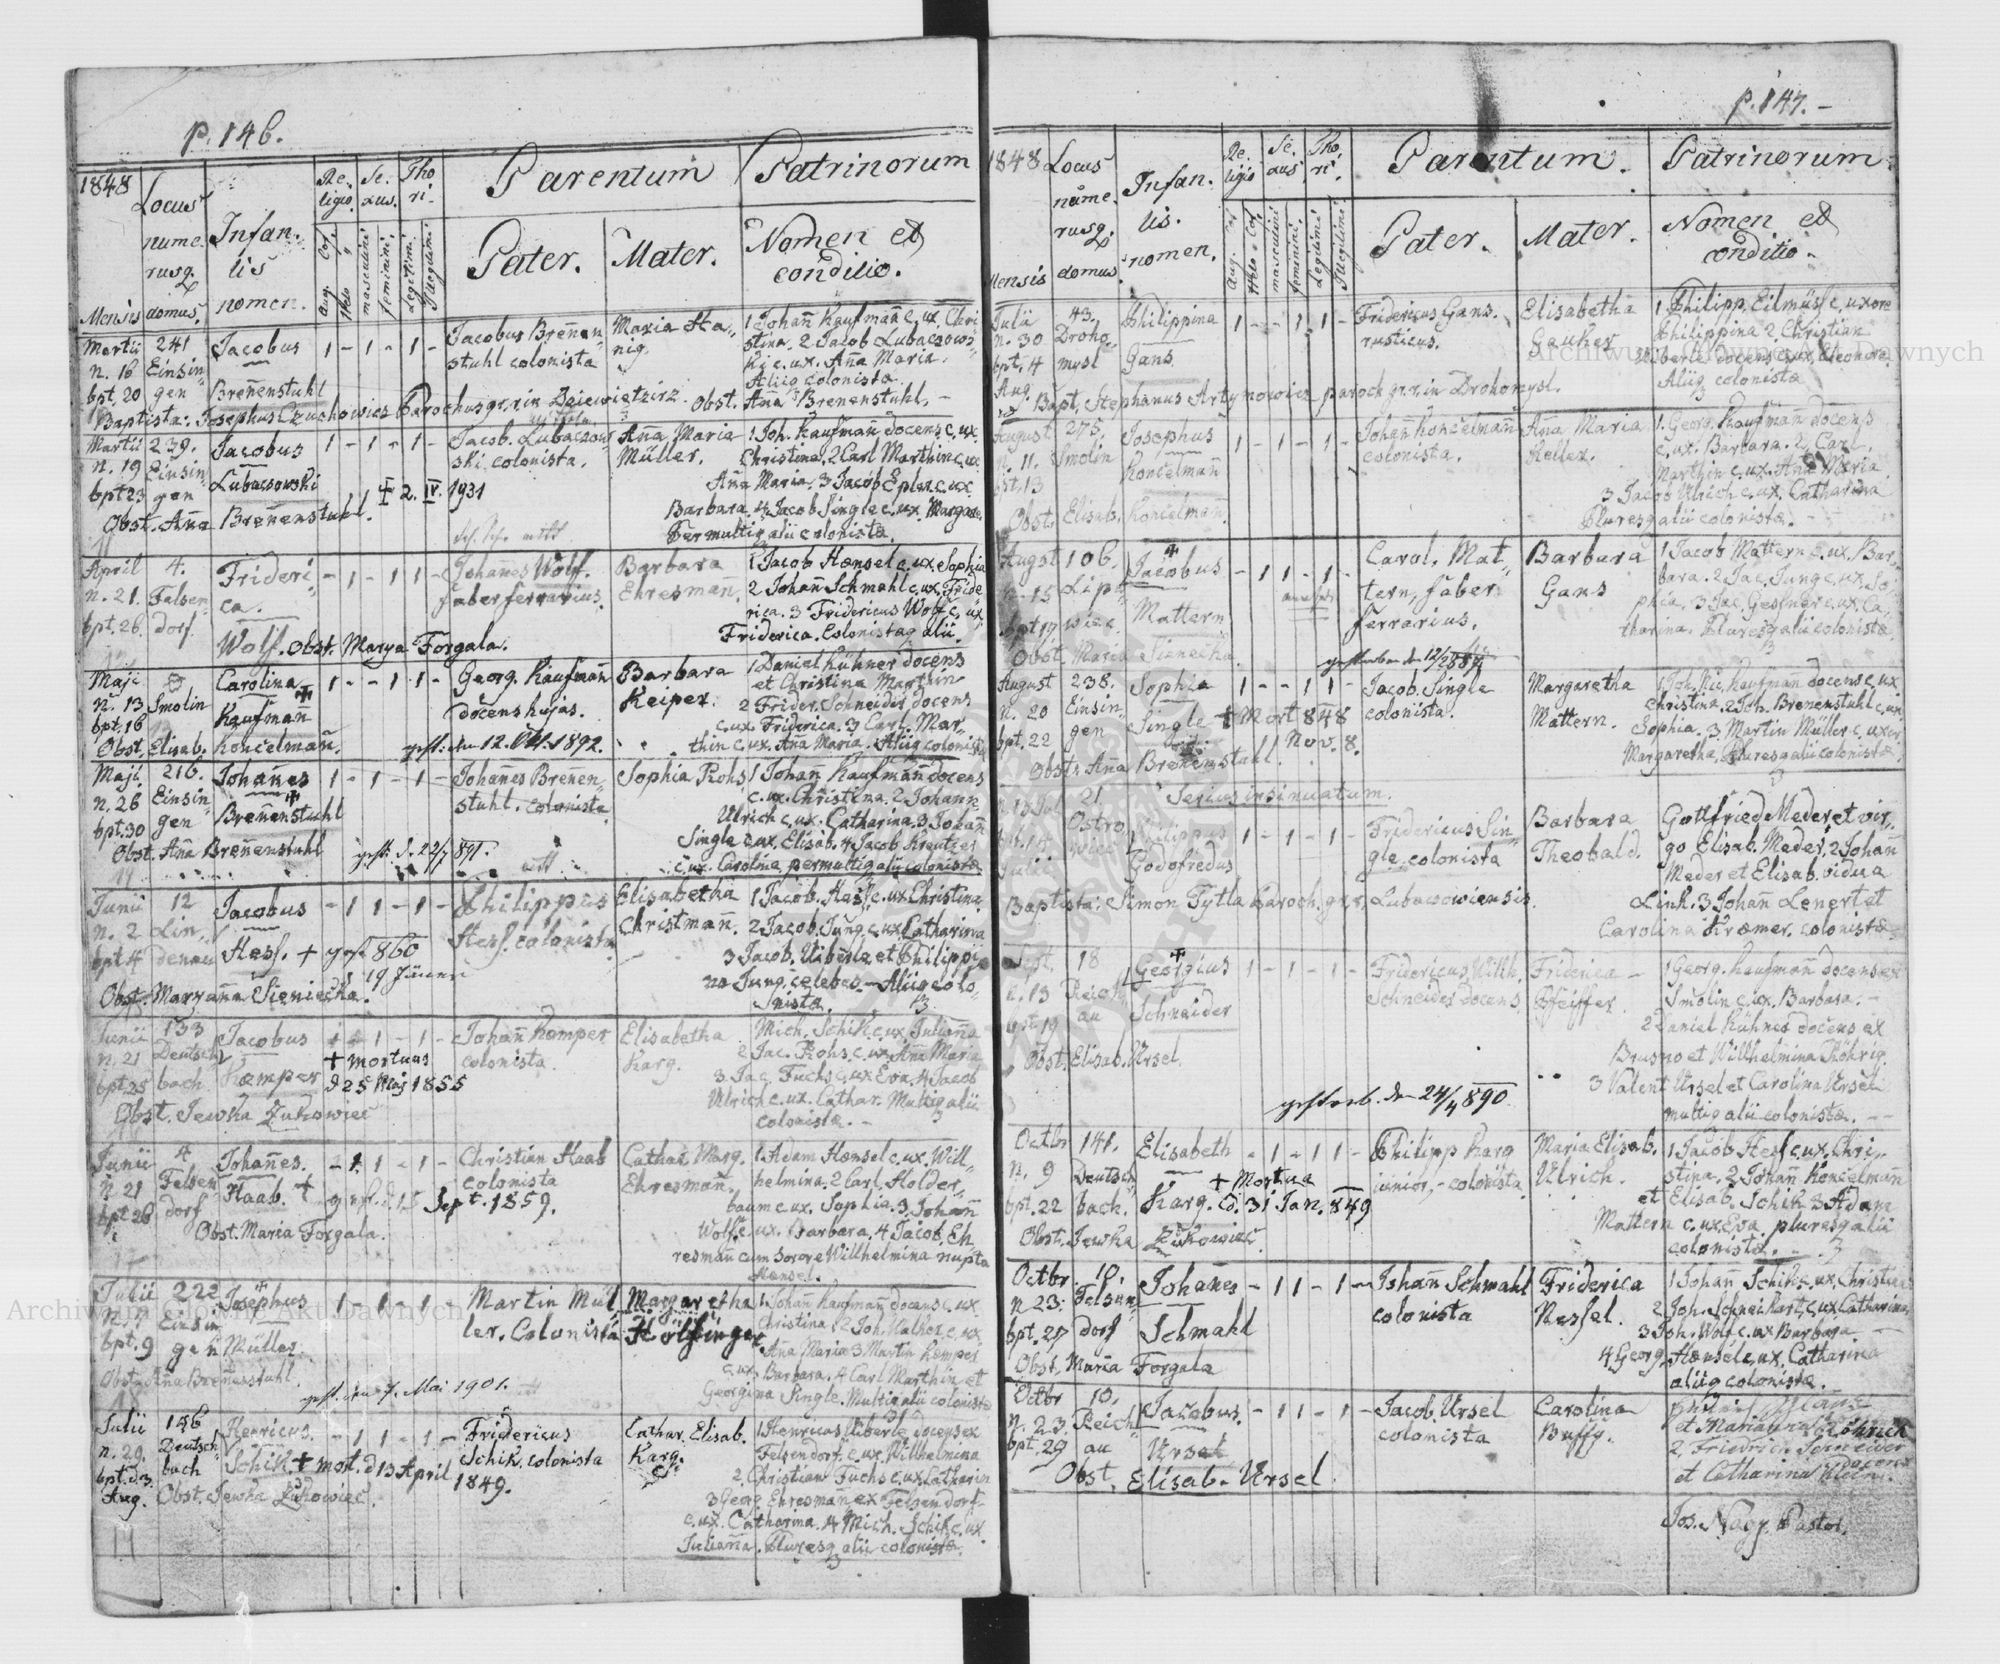 p. 146.
1848
Locus nume. rusq. domus.
Mensis
Infan. tis nomen.
Re. ligio.
Se. xus.
Tho ri.
Aug. Cof.
Helv "
masculini
feminini.
Legitimi.
Illegitimi
Parentum
Pater.
Mater.
Patrinorum
Nomen et conditio.
Martii 241 Jacobus 1 - 1 - 1 - Jacobus Breñen- Maria Ha- 1 Johañ Kaufmañ c. ux. Chri
n. 16 Einsin- stuhl colonista nig. stina. 2 Jacob Lubaczows
bpt. 20 gen Breñenstuhl ki c. ux. Aña Maria.
Aliiq colonistæ
Baptista: Josephus Czuchowicz Parochus gr. r. in Dziewięcierz. Obst. Aña Breñenstuhl. -
Martii 239. Jacobus 1 - 1 - 1 - Jacob. Lubaczow Aña Maria 1 Joh. Kaufmañ docens c. ux.
n. 19 Einsin- ski. colonista. Müller. Christina. 2 Carl Marthin c. ux.
bpt 23 gen Lubaczovski ‡ 2. IV. 1931 Aña Maria. 3 Jacob Epler c. ux
Obst. Aña Breñenstuhl. Barbara. 4 Jacob Single c. ux. Margare.
Permultiq alii colonistæ.
April 4. Frideri - 1 - 1 1 - Johañes Wolf. Barbara 1 Jacob Hænsel c. ux. Sophia
n. 21. Felsen- ca. faber ferrarius. Ehresmañ. 2 Johañ Schmahl c. ux. Fride
bpt. 26. dorf. rica. 3 Fridericus Wolf c. ux
Wolf. Obst. Marya Forgala. Friderica. Colonistaq alii.
Maji Carolina 1 - - 1 1 - Georg. Kaufmañ Barbara 1 Daniel Kühner docens
n. 13 Smolin docens hujas. Keiper. et Christina Marthin
bpt. 16 Kaufmañ 2 Frider. Schneider docens
c. ux. Friderica. 3 Carl. Mar
Obst. Elisab. Koncelmañ. gest: den 12. 1892. thin c. ux. Aña Maria. Aliiq colonistæ
Maji 216. Johañes 1 - 1 - 1 - Johañes Breñen- Sophia Rohs 1 Johañ Kaufmañ docens
n. 26 Einsin stuhl. colonista c. ux. Christina. 2 Johañ
bpt. 30 gen Breñenstuhl Ulrich c. ux. Catharina. 3 Johañ
Obst. Aña Breñenstuhl gest. d. 22/7 891. Single c. ux. Elisab. 4 Jacob Kreutzer
c. ux. Carolina, permultiq alii colonistæ
Junii 12 Jacobus - 1 1 - 1 - Philippus Elisabetha 1 Jacob. Hess c. ux Christina
n. 2 Lin- Hess. colonista Christmañ. 2 Jacob. Jung. c. ux Catharina
bpt 4 denau Hess. + gest 860 3 Jacob. Uiberle et Philippi
d. 19 Jänner na Jung, celebes. - Aliiq colo-
Obst. Maryaña Sieniecka. nistæ
Junii 133 Jacobus 1 - 1 - Johañ Kemper Elisabetha Mich. Schik c. ux Juliaña
n. 21 Deutsch + mortuus colonista. Karg. 2 Jac. Rohs c. ux. Aña Maria
bpt 25 bach. Kæmper d 25 Maj 1855 3. Jac. Fuchs c. ux Eva. 4 Jacob
Obst. Jewka Żukowiec Ulrich c. ux. Cathar. Multiq alii
colonistæ. -
Junii 4 Johañes. - 1 1 - 1 - Christian Haab Cathar Marg. 1 Adam Hænsel c. ux. Will-
n 21 Felsen colonista Ehresmañ. helmina. 2 Carl. Holder-
bpt 26 dorf Haab. + gest. d. 15 Sept. 1859. baum c. ux. Sophia. 3 Johañ
Obst. Maria Forgala. Wolf c. ux. Barbara. 4 Jacob. Eh
resmañ cum sorore Willhelmina nupta
Hænsel.
Julii 222 Josephus 1 - 1 - 1 - Martin Mül Margaretha 1 Johañ Kaufmañ docens c. ux.
Einsin ler. Colonista Christina. 2 Joh. Walker c. ux
bpt. 9 gen Müller. Aña Maria 3 Martin Kemper
Obst. Aña Breñenstuhl. c. ux. Barbara. 4 Carl Marthin et
gest. den 7. Mai 1901. Georgina Single. Multiq alii colonistæ
Julii 146 Henricus. - 1 1 - 1 - Fridericus Cathar. Elisab. 1 Henricus Uiberle docens ex
n. 29. Deutsch Schik. colonista Karg. Felsendorf. c. ux. Wilhelmina
bpt. d. 3 bach Schik. + mort. d 13 April 1849. 2. Christian Fuchs c. ux Catharin
Aug. Obst. Jewka Żukowiec. 3 Georg Ehresmañ ex Felsendorf
c. ux. Catharina. 4 Mich. Schik c. ux.
Juliaña. Pluresq alii colonistæ.
p. 147. -
1848
Locus nume. rusq. domus
Mensis
Infan. tis. nomen.
Re. ligio
Se. xus
Tho. ri.
Aug. Cof
Helv. Cof.
masculini
feminini.
Legitimi
Illegitimi
Parentum.
Pater.
Mater.
Patrinorum
Nomen et conditio.
Julii 43. Philippina 1 - - 1 1 - Fridericus Gans. Elisabetha 1 Philipp. Eilmüss c. uxore
n. 30 Droho- Gans rusticus. Gauker Philippina 2. Christian
bpt. 4 mysl Uiberle docens c. ux. Eleonora
Aug. Aliiq colonistæ
Bapt. Stephanus Artymowicz paroch gr. r. in Drohomysl.
August 275. Josephus 1 - 1 - 1 - Johañ Koncelmañ Aña Maria 1. Georg. Kaufmañ docens
n. 11. Smolin Koncelmañ colonista. Keller. c. ux. Barbara. 2. Carl.
bpt. 13 Marthin c. ux. Aña Maria
3 Jacob Ulrich c. ux. Catharina
Obst. Elisab. Koncelmañ. Pluresq alii colonistæ. -
August 106. Jacobus - 1 1 - 1 - Carol. Mat- Barbara 1 Jacob Mattern c. ux. Bar-
n. 15 Lipo- tern, faber Gans bara. 2 Jac. Jung c. ux. So-
bpt 17 wiec Mattern ferrarius. phia. 3 Jac. Gessner c. ux. Ca-
tharina. Pluresq alii colonistæ
Obst. Maria Sieniecka. gestorben den 12/2 884
August 238. Sophia 1 - - 1 1 - Jacob. Single Margaretha 1. Joh. Nic. Kaufmañ docens c. ux
n. 20 Einsin- colonista. Mattern. Christina. 2 Joh. Breñenstuhl c. ux.
bpt. 22 gen Single + Mort 848 Nov. 8. Sophia. 3 Martin Müller c. uxor
Obst. Aña Breñenstuhl. Margaretha, Pluresq alii colonistæ.
Serius insinuatum.
n. 13 Jul 21. Philippus 1 - 1 - 1 - Fridericus Sin- Barbara Gottfried Meder et vir-
bpt. 14 Ostro gle. colonista Theobald. go Elisab. Meder. 2 Johan
Julii wiec Godofredus Meder et Elisab. vidua
Link. 3 Johañ Lenert et
Baptista: Simon Tytla Paroch. gr. r. Lubaczowiensis. Carolina Kræmer. colonistæ
Sept. 18 Georgius 1 - 1 - 1 - Fridericus Willh. Friderica - 1 Georg. Kaufmañ docens ex
n. 13 Reich Schneider docens Pfeiffer. Smolin c. ux. Barbara. -
bpt. 19 au Schneider 2 Daniel Kühner docens ex
Obst. Elisab. Ursel. Brusno et Willhelmina Röhrig.
3 Valent Ursel et Carolina Ursel
gestorb. den 24/4 890 multiq alii colonistæ. - -
Octbr 141. Elisabeth - 1 - 1 1 - Philipp Karg Maria Elisab. 1 Jacob Hess c. ux. Chri-
n. 9 Deutsch + Mortua junior, - colonista Ulrich. stina. 2 Johañ Koncelmañ
bpt. 22 bach. Karg. d. 31 Jan. 849 et Elisab. Schik 3 Adam
Obst. Jewka Żukowiec. Mattern c. ux. Eva pluresq alii
colonistæ.
Octbr 10. Johañes - 1 1 - 1 - Johañ Schmahl Friderica 1 Johañ Schik c. ux. Christina
n 23. Felsen- colonista Nessel. 2 Joh. Schweikart, c. ux Catharina
bpt. 27 dorf Schmahl 3 Joh. Wolf, c. ux Barbara. -
Obst. Maria Forgala 4 Georg. Hænsel c. ux. Catharina
aliiq colonistæ.
Octbr 10. Jacobus. - 1 1 - 1 - Jacob. Ursel Carolina
n. 23. Reich colonista Buffy. et Mariaña Röhrich
bpt. 29 au Ursel 2. Friedrich Schneider docens
Obst. Elisab. Ursel et Catharina Klein.
Jos. Nagy. Pastor.
Archiwum Główne Akt Dawnych
Archiwum Główne Akt Dawnych